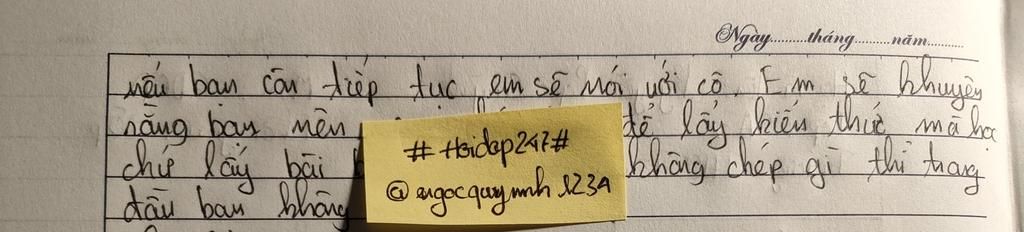 Ngày.........tháng.........năm...........
nếu bạn còn tiếp tục em sẽ nói với cô. Em sẽ khuyên
rằng bạn nên để lấy kiến thức mà học
chép lấy bài không chép gì thì trong
đầu bạn không
#Hoidap247#
@ngocquynh123A